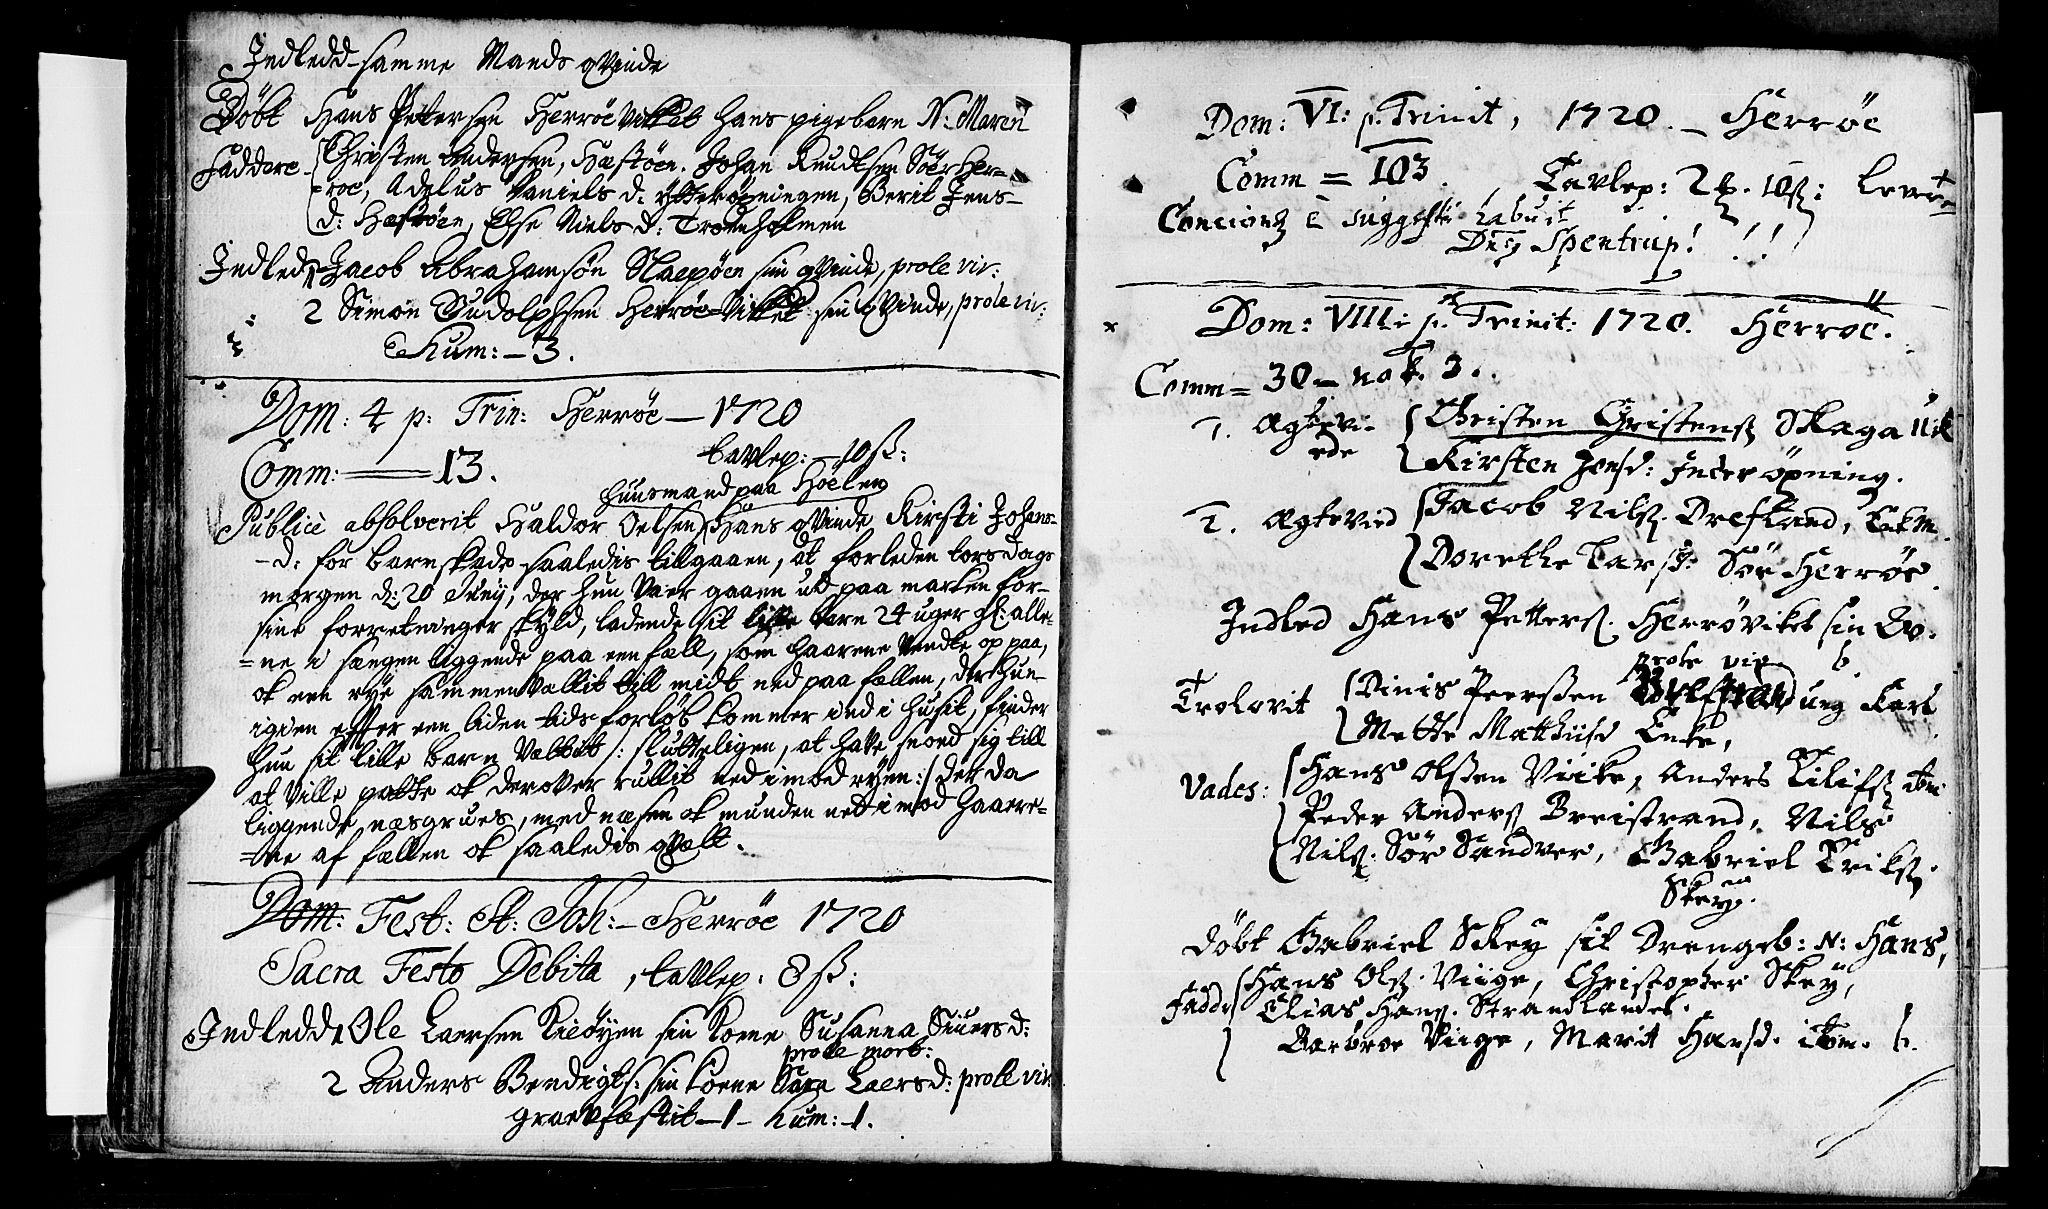 Indledd samme Mands qvinde
Döbt Hans Pettersen Herröe Vikket hans pigebarn N: Maren
Faddere Christen Andersen, Hæstöen. Johan Knudtsen Söer Her=
=roe, Adelus Daniels d: ytteröpningen, Berit Jens-
d: Hæstöen, Else Niels d: Troenholmen
Indledd 1 Jacob Abrahamsön Slaepöen sin qvinde, prole viv:
2 Simon Rudolphsen Herröe=Vikket sin qvinde, prole viv:
Hum: - 3.
Dom: 4 p: Trin: Herröe - 1720
Comm: — 13. tavlep: - 10 ß:
huusmand paa Hoelen
Publicè absolverit Haldor Oelsen Hans qvinde Kirsti Johans-
-d: for barnskade saaledis tillgaaen, at forleden torsdags
morgen d: 20 Juny, der hun Vaer gaaen ud paa marken for-
sine forretninger skyld, ladende sit lille barn 24 uger gl: alle-
=ne i sængen liggende paa een fæll, som haarene Vendte op paa,
ok een rye sammenvallit till midt ned paa fællen, der hun
igien effter een liden tids forlöb kommer ind i husit, finder
hun sit lille barn Valtet /: slutteligen, at have snoed sig till
at Ville patte ok derover rullit ned imod ryen :/ der da
liggende næsgrues, med næsen ok munden ned imod haarre-
=ne af fællen ok saaledis qvalt.
Dom: Fest: St: Joh: - Herröe 1720
Sacra Festo Debita, tavlep. 8 ß:
Indledd 1 Ole Laersen Kieöyen sin kone Susanna Siuers d:
prole mort:
2 Anders Bendigts: sin koene Sara Laersd: prole viv:
graevfæstit - 1 - hum: - 1.
Dom: VI: p. Trinit, 1720. - Herröe
Comm = 103. Tavlep: 2 10 ß:
Concionem è suggestu habuit
Spentrup! !!
Dom: VIII: p. Trinit: 1720. Herröe.
Comm = 30 - not. 3.
1. Ægtevi-
ede Christen Christenß Skaga
Kirsten Jensd: Inderöpning.
2. Ægtevied Jacob Nilß. Drefland,
Dorethe Larsd: Sör Herröe
Indled Hans Petterß. Herröviket sin Qv.
prole viv.
Trolovit Dinis Peerßen ung Karl
Mette Matthiisd Enke,
Vades: Hans Olßen Viike, Anders Eilifß ibm
Peder Anderß Breistrand, Nils
Nilß. Sör Sandver, Gabriel Erikß.
Skey.
Döbt Gabriel Skey sit Drengeb: N: Hans,
Fadd: Hans Olß. Viige, Christopher Skey,
Elias Hanß. Strandlandet.
Barbroe Viige, Marit Hansd. ibm.